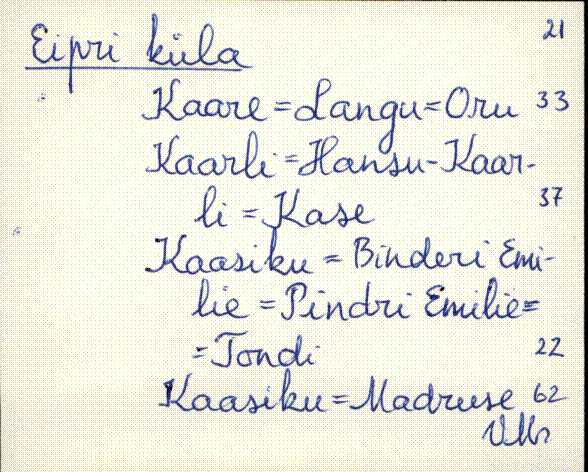 21
Eipri küla
Kaare = Langu = Oru 33
Kaarli = Hansu-Kaar-
li = Kase 37
Kaasiku = Binderi Emi-
lie = Pindri Emilie =
= Tondi 22
Kaasiku = Madruse 62